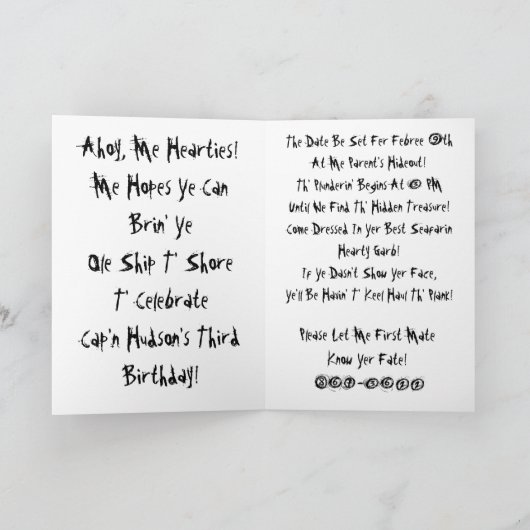 Ahoy, Me Hearties!
Me Hopes Ye Can
Brin' Ye
Ole Ship T' Shore
T' Celebrate
Cap'n Hudson's Third
Birthday!
The Date Be Set Fer Febree 9th
At Me Parent's Hideout!
Th' Plunderin' Begins At PM
Until We Find Th' Hidden Treasure!
Come Dressed In Yer Best Seafarin
Hearty Garb!
If Ye Dasn't Show Yer Face,
Ye'll Be Havin' T' Keel Haul Th' Plank!
Please Let Me First Mate
Know Yer Fate!